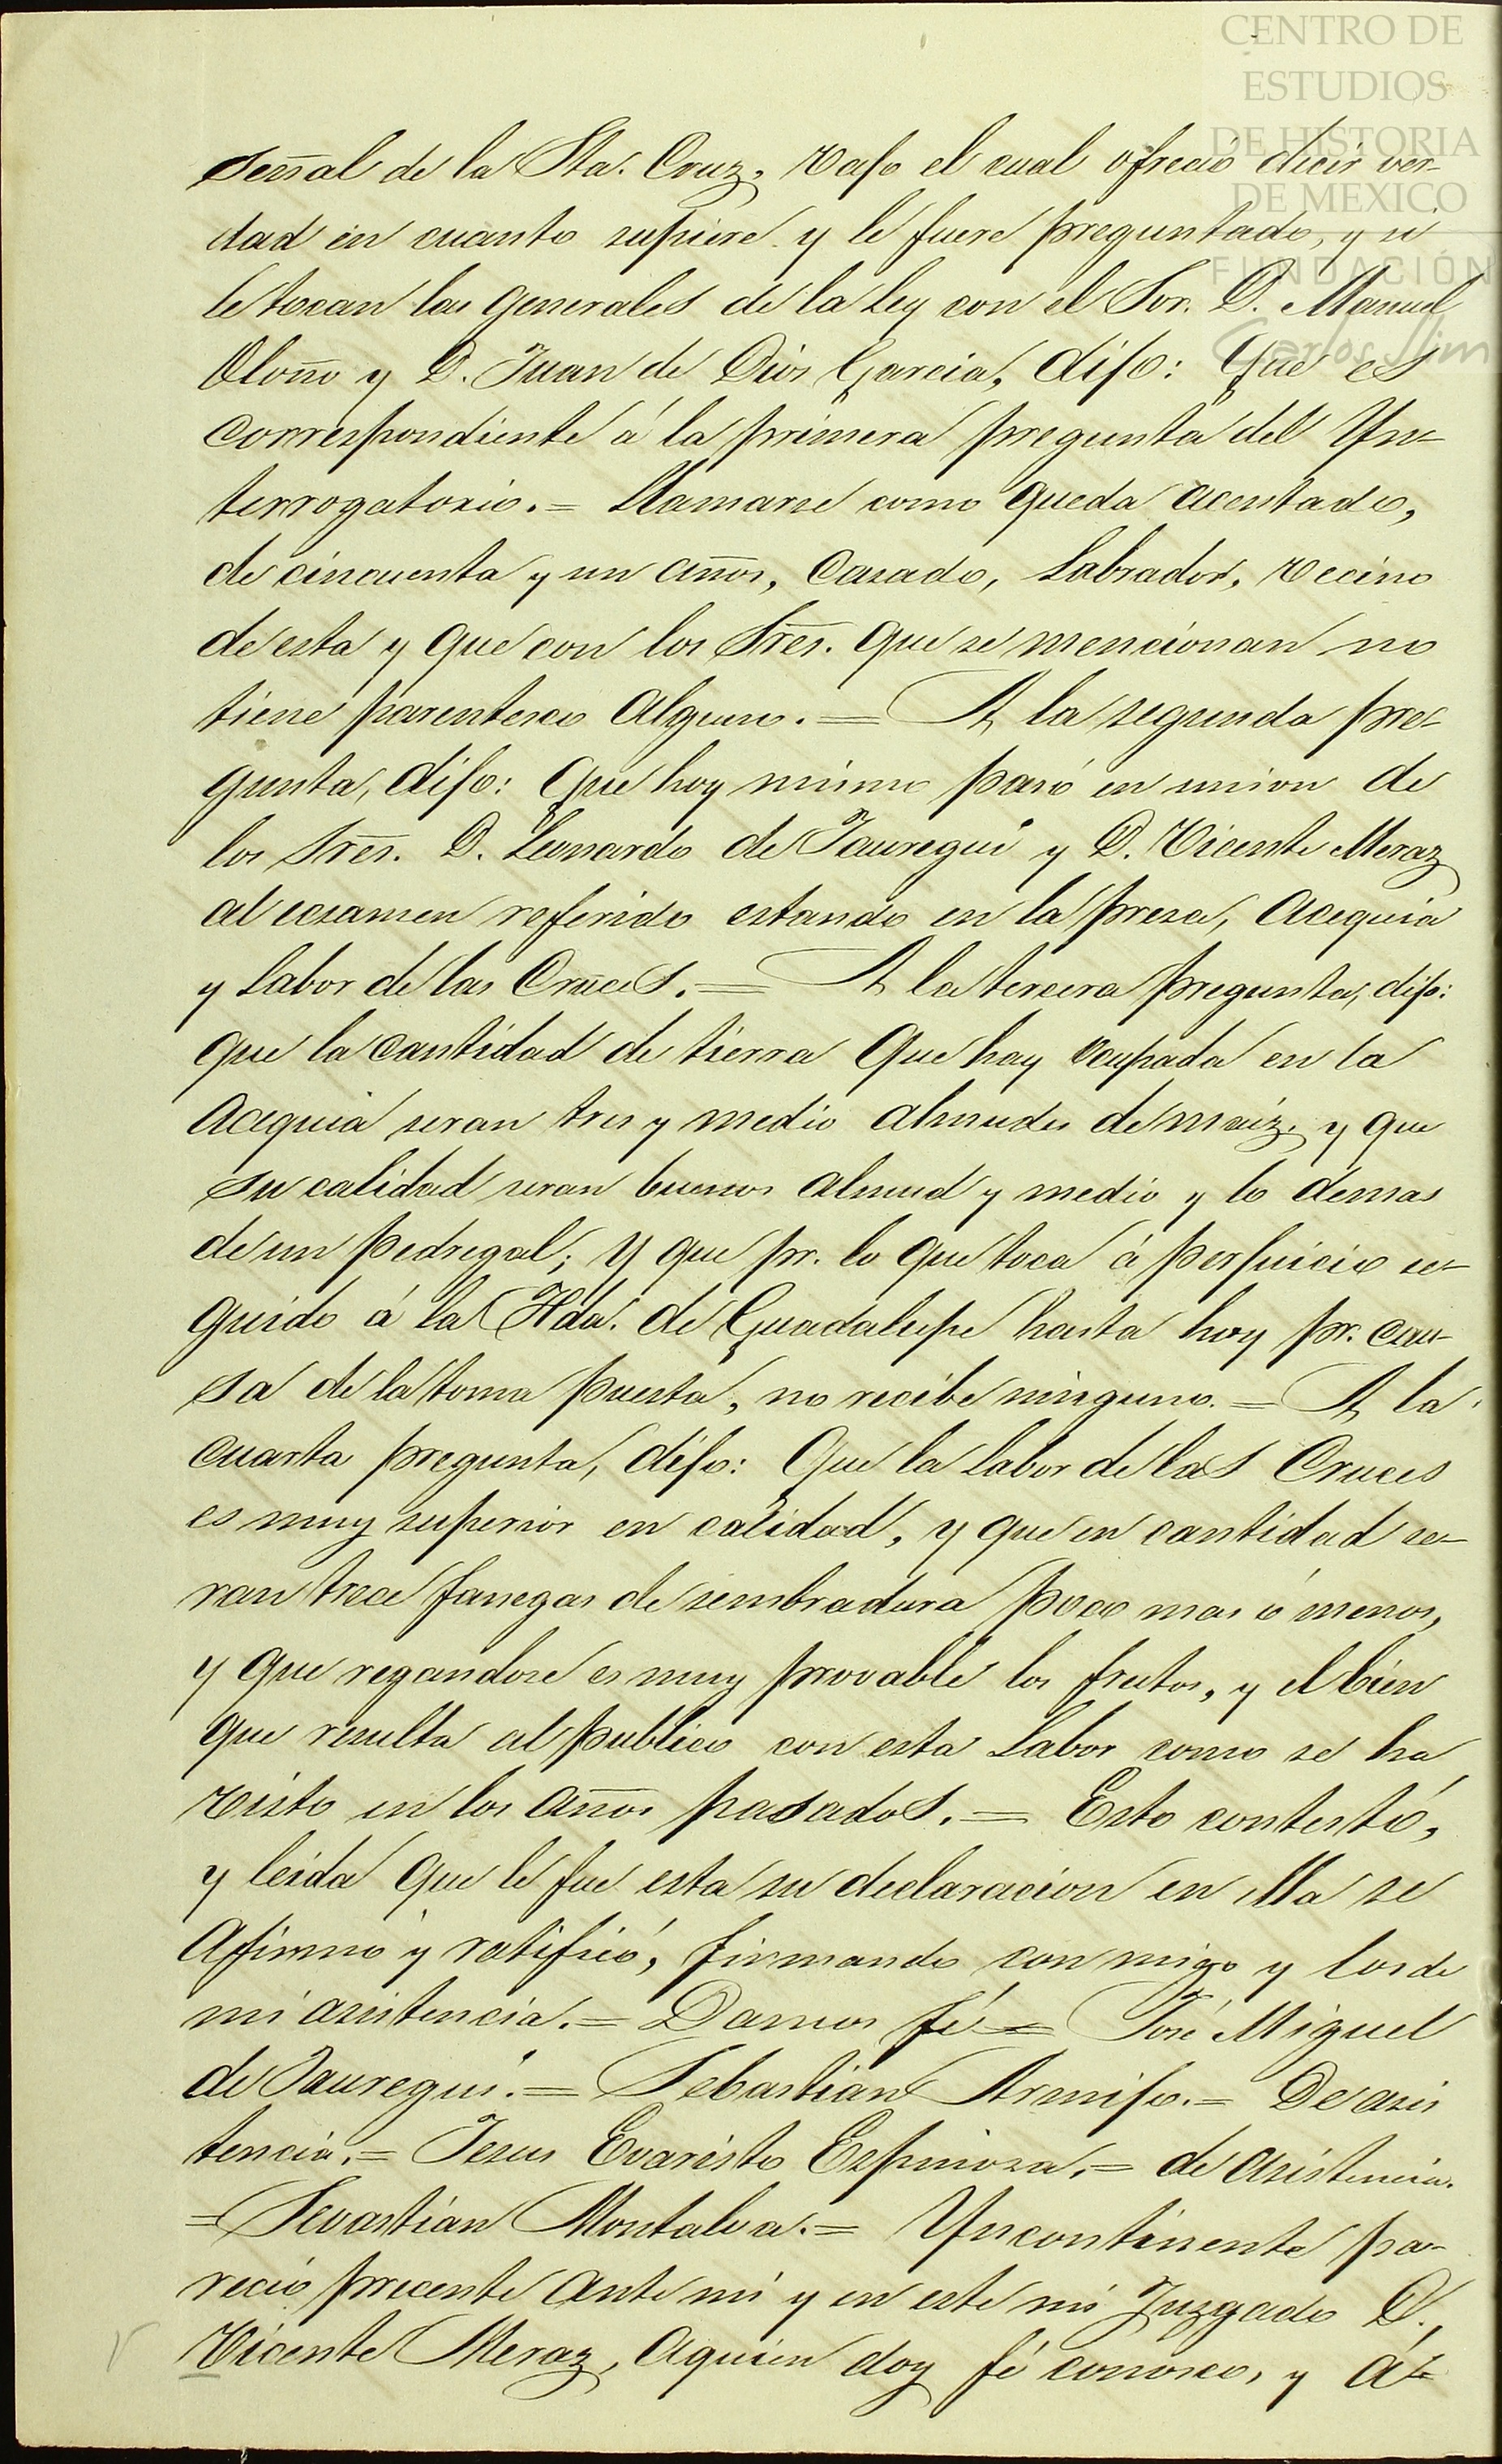 CENTRO DE
ESTUDIOS
DE HISTORIA
DE MEXICO
FUNDACIÓN
Carlos Slim
señal de la Sta. Cruz, vajo el cual ofreció decir ver-
dad en cuanto supiere y le fuere preguntado, y si
le tocan las generales de la Ley con el Sor. D. Manuel
Oloño y D. Juan de Dios Garcia, dijo: Que es
correspondiente á la primera pregunta del Yn-
terrogatorio.= Llamarse como queda acentado,
de cincuenta y un años, Casado, Labrador, vecino
de esta y que con los Sres. que se mencionan no
tiene parentesco alguno.= A la segunda pre-
gunta, dijo: Que hoy mismo pasó en union de
los Sres. D. Leonardo de Jauregui y D. Vicente Meraz
al ecsamen referido estando en la presa, acequia
y Labor de las Cruces.= A la tercera pregunta, dijo:
que la cantidad de tierra que hay ocupada en la
acequia seran tres y medio almudes de maiz, y que
su calidad seran buenos almud y medio y lo demas
de un pedregal; y que pr. lo que toca á perjuicio se-
guido á la Hda. de Guadalupe hasta hoy pr. cau-
sa de la toma puesta, no recibe ninguno.= A la
cuarta pregunta, dijo: Que la Labor de las Cruces
es muy superior en calidad, y que en cantidad se-
ran trece fanegas de sembradura poco mas ó menos,
y que regandose es muy provable los frutos, y el bien
que resulta al publico con esta Labor como se ha
visto en los años pasados.= Esto contestó,
y leida que le fue esta su declaracion en ella se
afirmó y ratificó, firmando con migo y los de
mi asistencia.= Damos fé= José Miguel
de Jauregui.= Sebastian Armijo.= De asis
tencia.= Jesus Evaristo Espinoza.= de asistencia.
=Sevastian Montalva.= Yncontinente pa-
reció precente ante mi y en este mi Juzgado D.
Vicente Meraz, aquien doy fé conosco, y á=